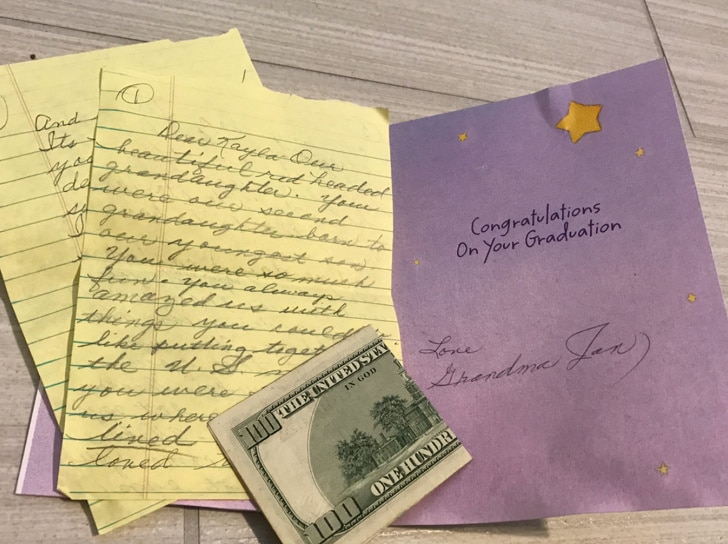 And
Its
you
1
Dear Kayla - Our
beautiful red headed
grandaughter. You
were our second
grandaughter born to
our youngest son
You were so much
fun. You always
amazed us with
things you could
like putting toget
the U.S.
you were
us where
lived
loved
Congratulations
On Your Graduation
Love
Grandma Jan
100
THE UNITED STA
IN GOD
ONE HUNDR
100